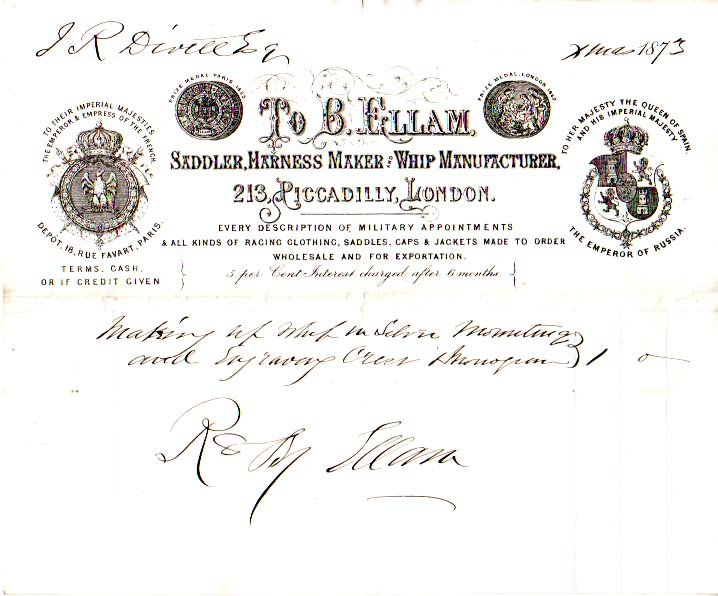 J R Divett Esq
Xmas 1873
PRIZE MEDAL PARIS 1855
PRIZE MEDAL, LONDON 1862
TO THEIR IMPERIAL MAJESTIES
THE EMPEROR & EMPRESS OF THE FRENCH
DEPÔT, 18, RUE FAVART, PARIS.
To B. Ellam,
Saddler, Harness Maker and Whip Manufacturer,
213, Piccadilly, London.
TO HER MAJESTY THE QUEEN OF SPAIN,
AND HIS IMPERIAL MAJESTY
THE EMPEROR OF RUSSIA.
EVERY DESCRIPTION OF MILITARY APPOINTMENTS
& ALL KINDS OF RACING CLOTHING, SADDLES, CAPS & JACKETS MADE TO ORDER
WHOLESALE AND FOR EXPORTATION.
TERMS, CASH,
OR IF CREDIT GIVEN
5 per Cent Interest charged after 6 months.
Making up whip in Silver Mounting
and Engraving Crest & Monogram } 1 0 —
Rd By Ellam